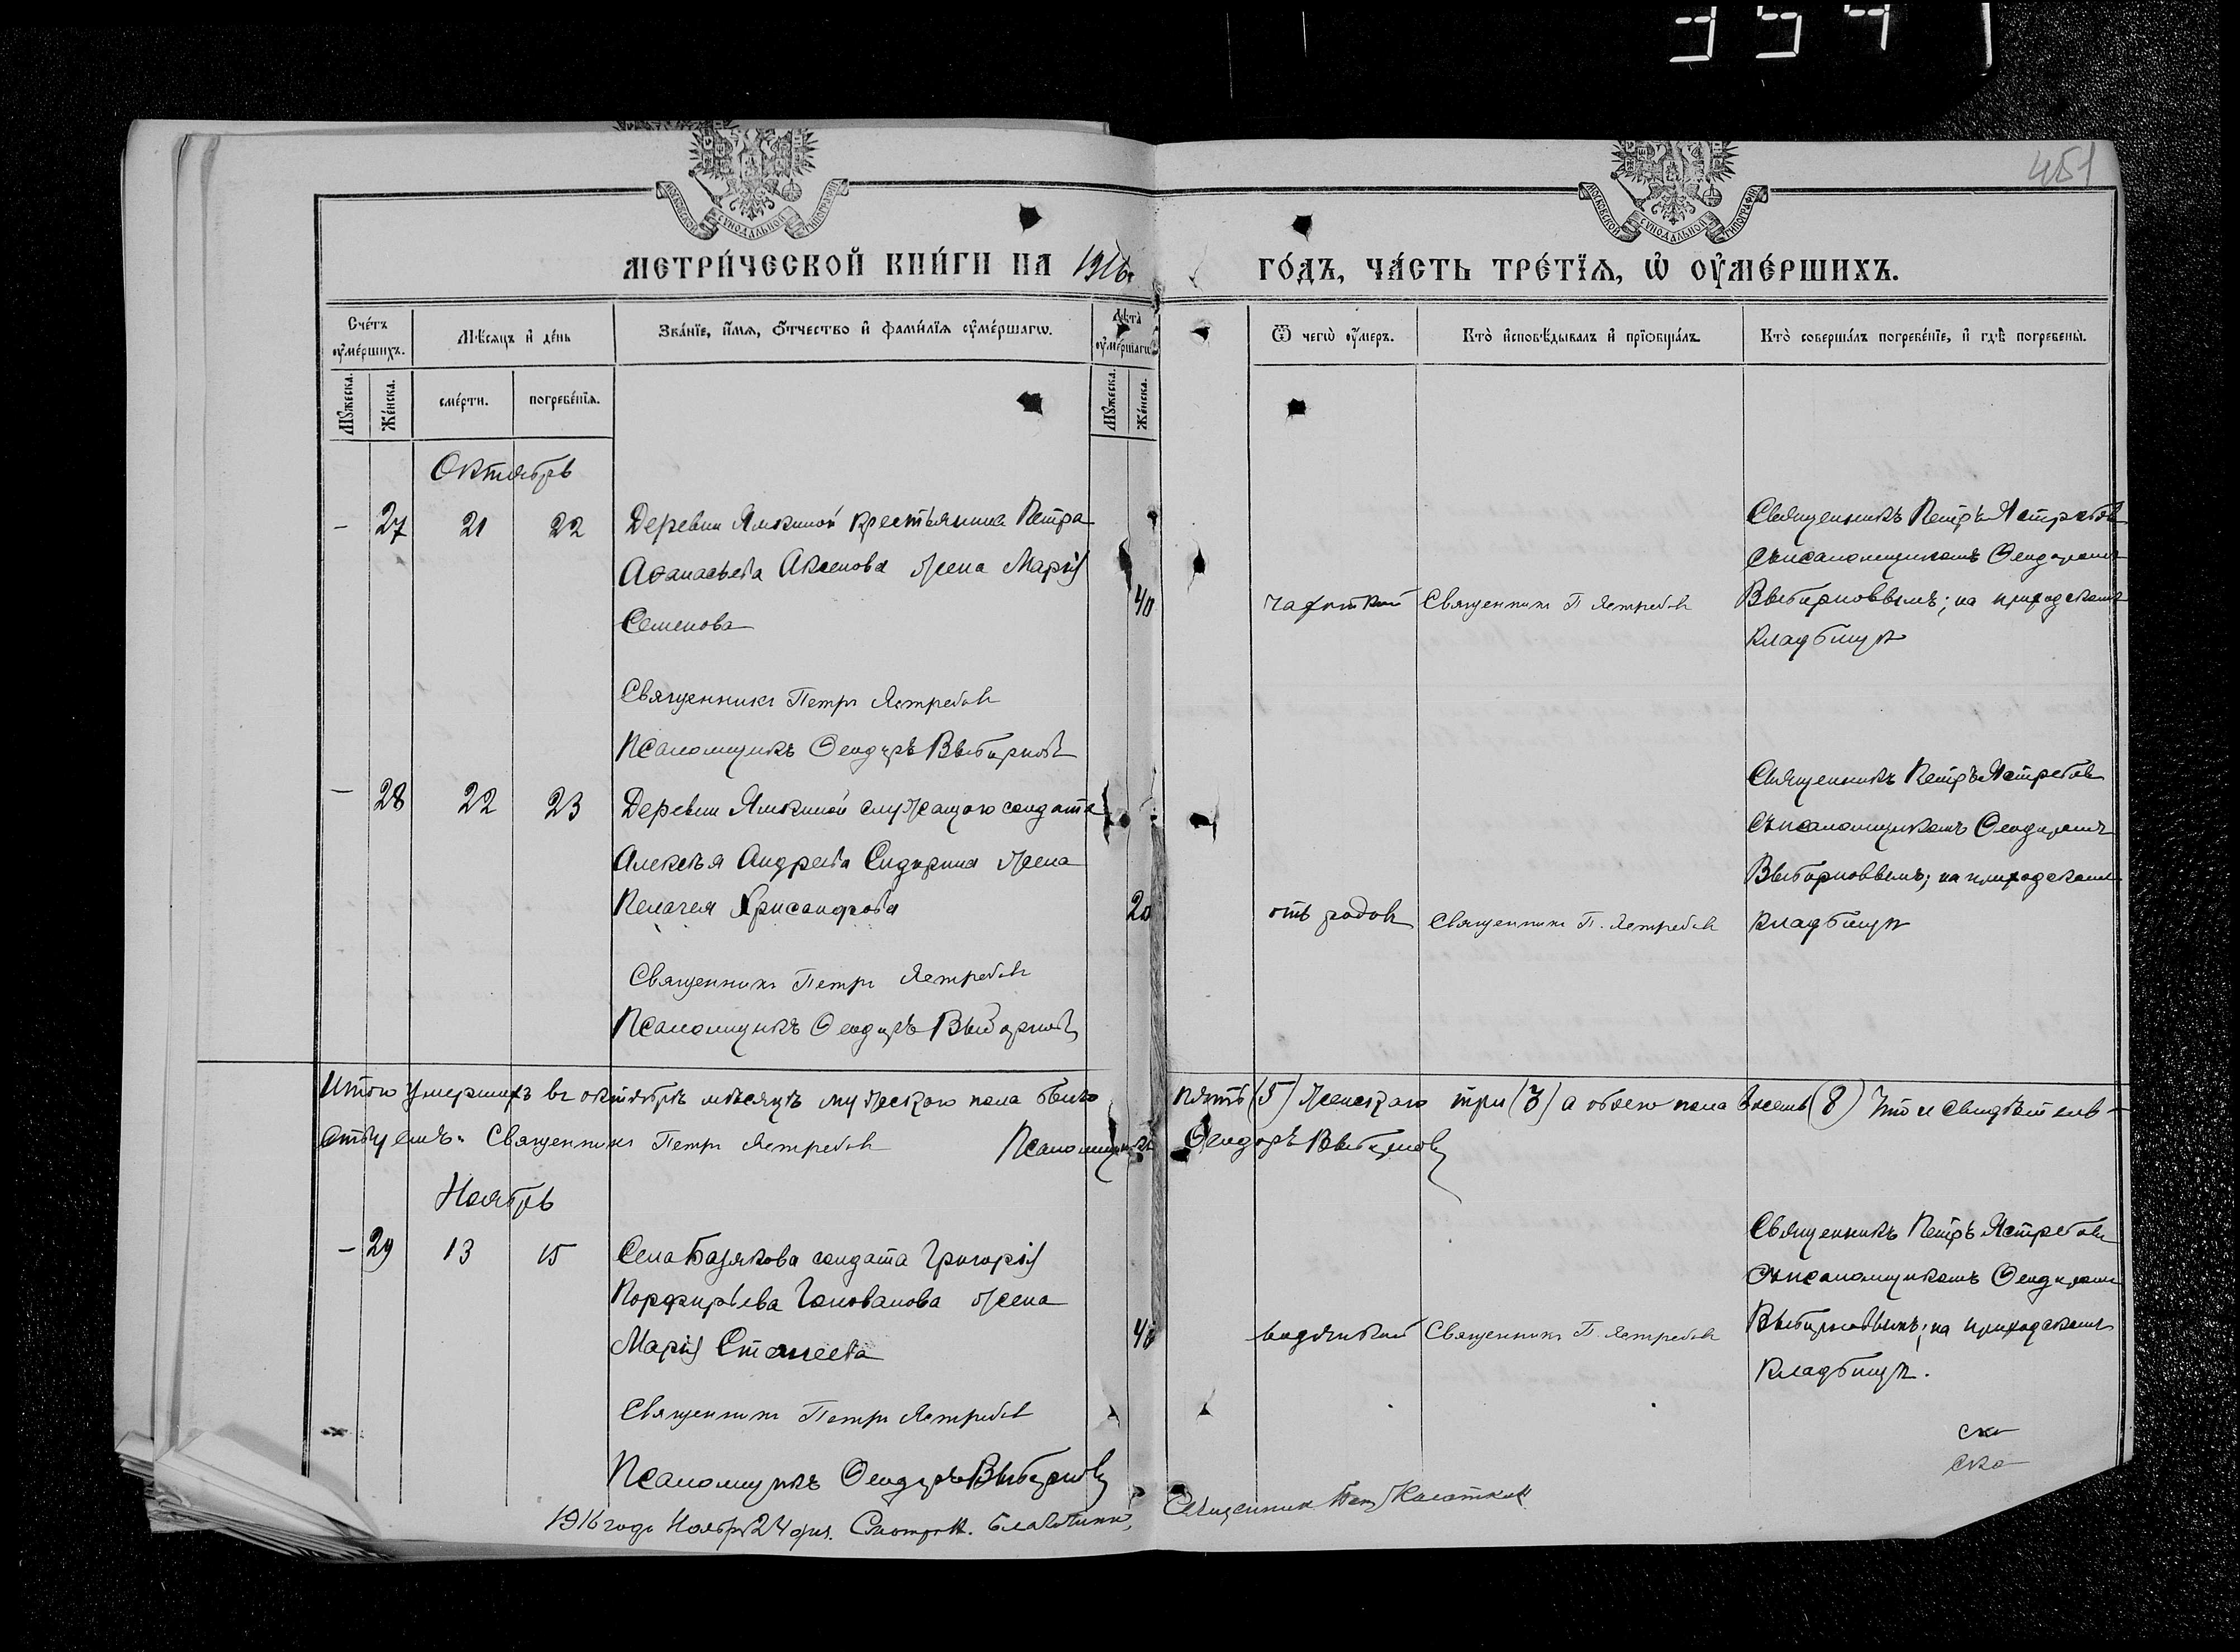 354
451
МОСКОВСКОЙ СУНОДАЛЬНОЙ ТИПОГРАФІИ
МОСКОВСКОЙ СУНОДАЛЬНОЙ ТИПОГРАФІИ
МЕТРИ́ЧЕСКОЙ КНИ́ГИ НА 1916г.
ГО́ДЪ, ЧА́СТЬ ТРЕ́ТЇѦ, Ѡ ОУ҆МЕ́РШИХЪ.
Сче́тъ оу҆ме́ршихъ.
Мѣ́сяцъ и҆ де́нь
Зва́нїе, и҆́мѧ, ѻ҆́тчество и҆ фами́лїѧ оу҆ме́ршагѡ.
Лѣ́та оу҆ме́ршагѡ
Ѿ чегѡ̀ оу҆́меръ.
Кто̀ и҆сповѣ́дывалъ и҆ прїѻбща́лъ.
Кто̀ соверша́лъ погребе́нїе, и҆ гдѣ̀ погребены̀.
Мꙋ́жеска.
Же́нска.
сме́рти.
погребе́нїѧ.
Мꙋ́жеска.
Же́нска.
Октябрь
– 27 21 22 Деревни Ямкиной крестьянина Петра
Аѳанасьева Аксенова жена Марія
Семенова
40 чахоткой Священникъ П Ястребовъ
Священникъ Петръ Ястребовъ
съ псаломщикомъ Ѳеодоромъ
Выборновымъ; на приходскомъ
кладбищѣ
Священникъ Петръ Ястребовъ
Псаломщикъ Ѳеодоръ Выборновъ
– 28 22 23 Деревни Ямкиной служащаго солдата
Алексѣя Андреева Сидорина жена
Пелагея Хрисанфова
20 отъ родовъ Священникъ П. Ястребовъ
Священникъ Петръ Ястребовъ
съ псаломщикомъ Ѳеодоромъ
Выборновымъ; на приходскомъ
кладбищѣ
Священникъ Петръ Ястребовъ
Псаломщикъ Ѳеодоръ Выборновъ
Итого умершихъ въ октябрѣ мѣсяцѣ мужескаго пола было пять (5) женскаго три (3) а обоего пола восемь (8) Что и свидѣтель-
ствуемъ. Священникъ Петръ Ястребовъ Псаломщикъ Ѳеодоръ Выборновъ
Ноябрь
– 29 13 15 Села Базякова солдата Григорія
Порфирьева Голованова жена
Марія
40 водянкой Священникъ П. Ястребовъ
Священникъ Петръ Ястребовъ
съ псаломщикомъ Ѳеодоромъ
Выборновымъ; на приходскомъ
кладбищѣ.
Священникъ Петръ Ястребовъ
Псаломщикъ Ѳеодоръ Выборновъ
ско
ско
1916 года Ноября 24 дня. Смотрѣлъ. Благочинный, Священник